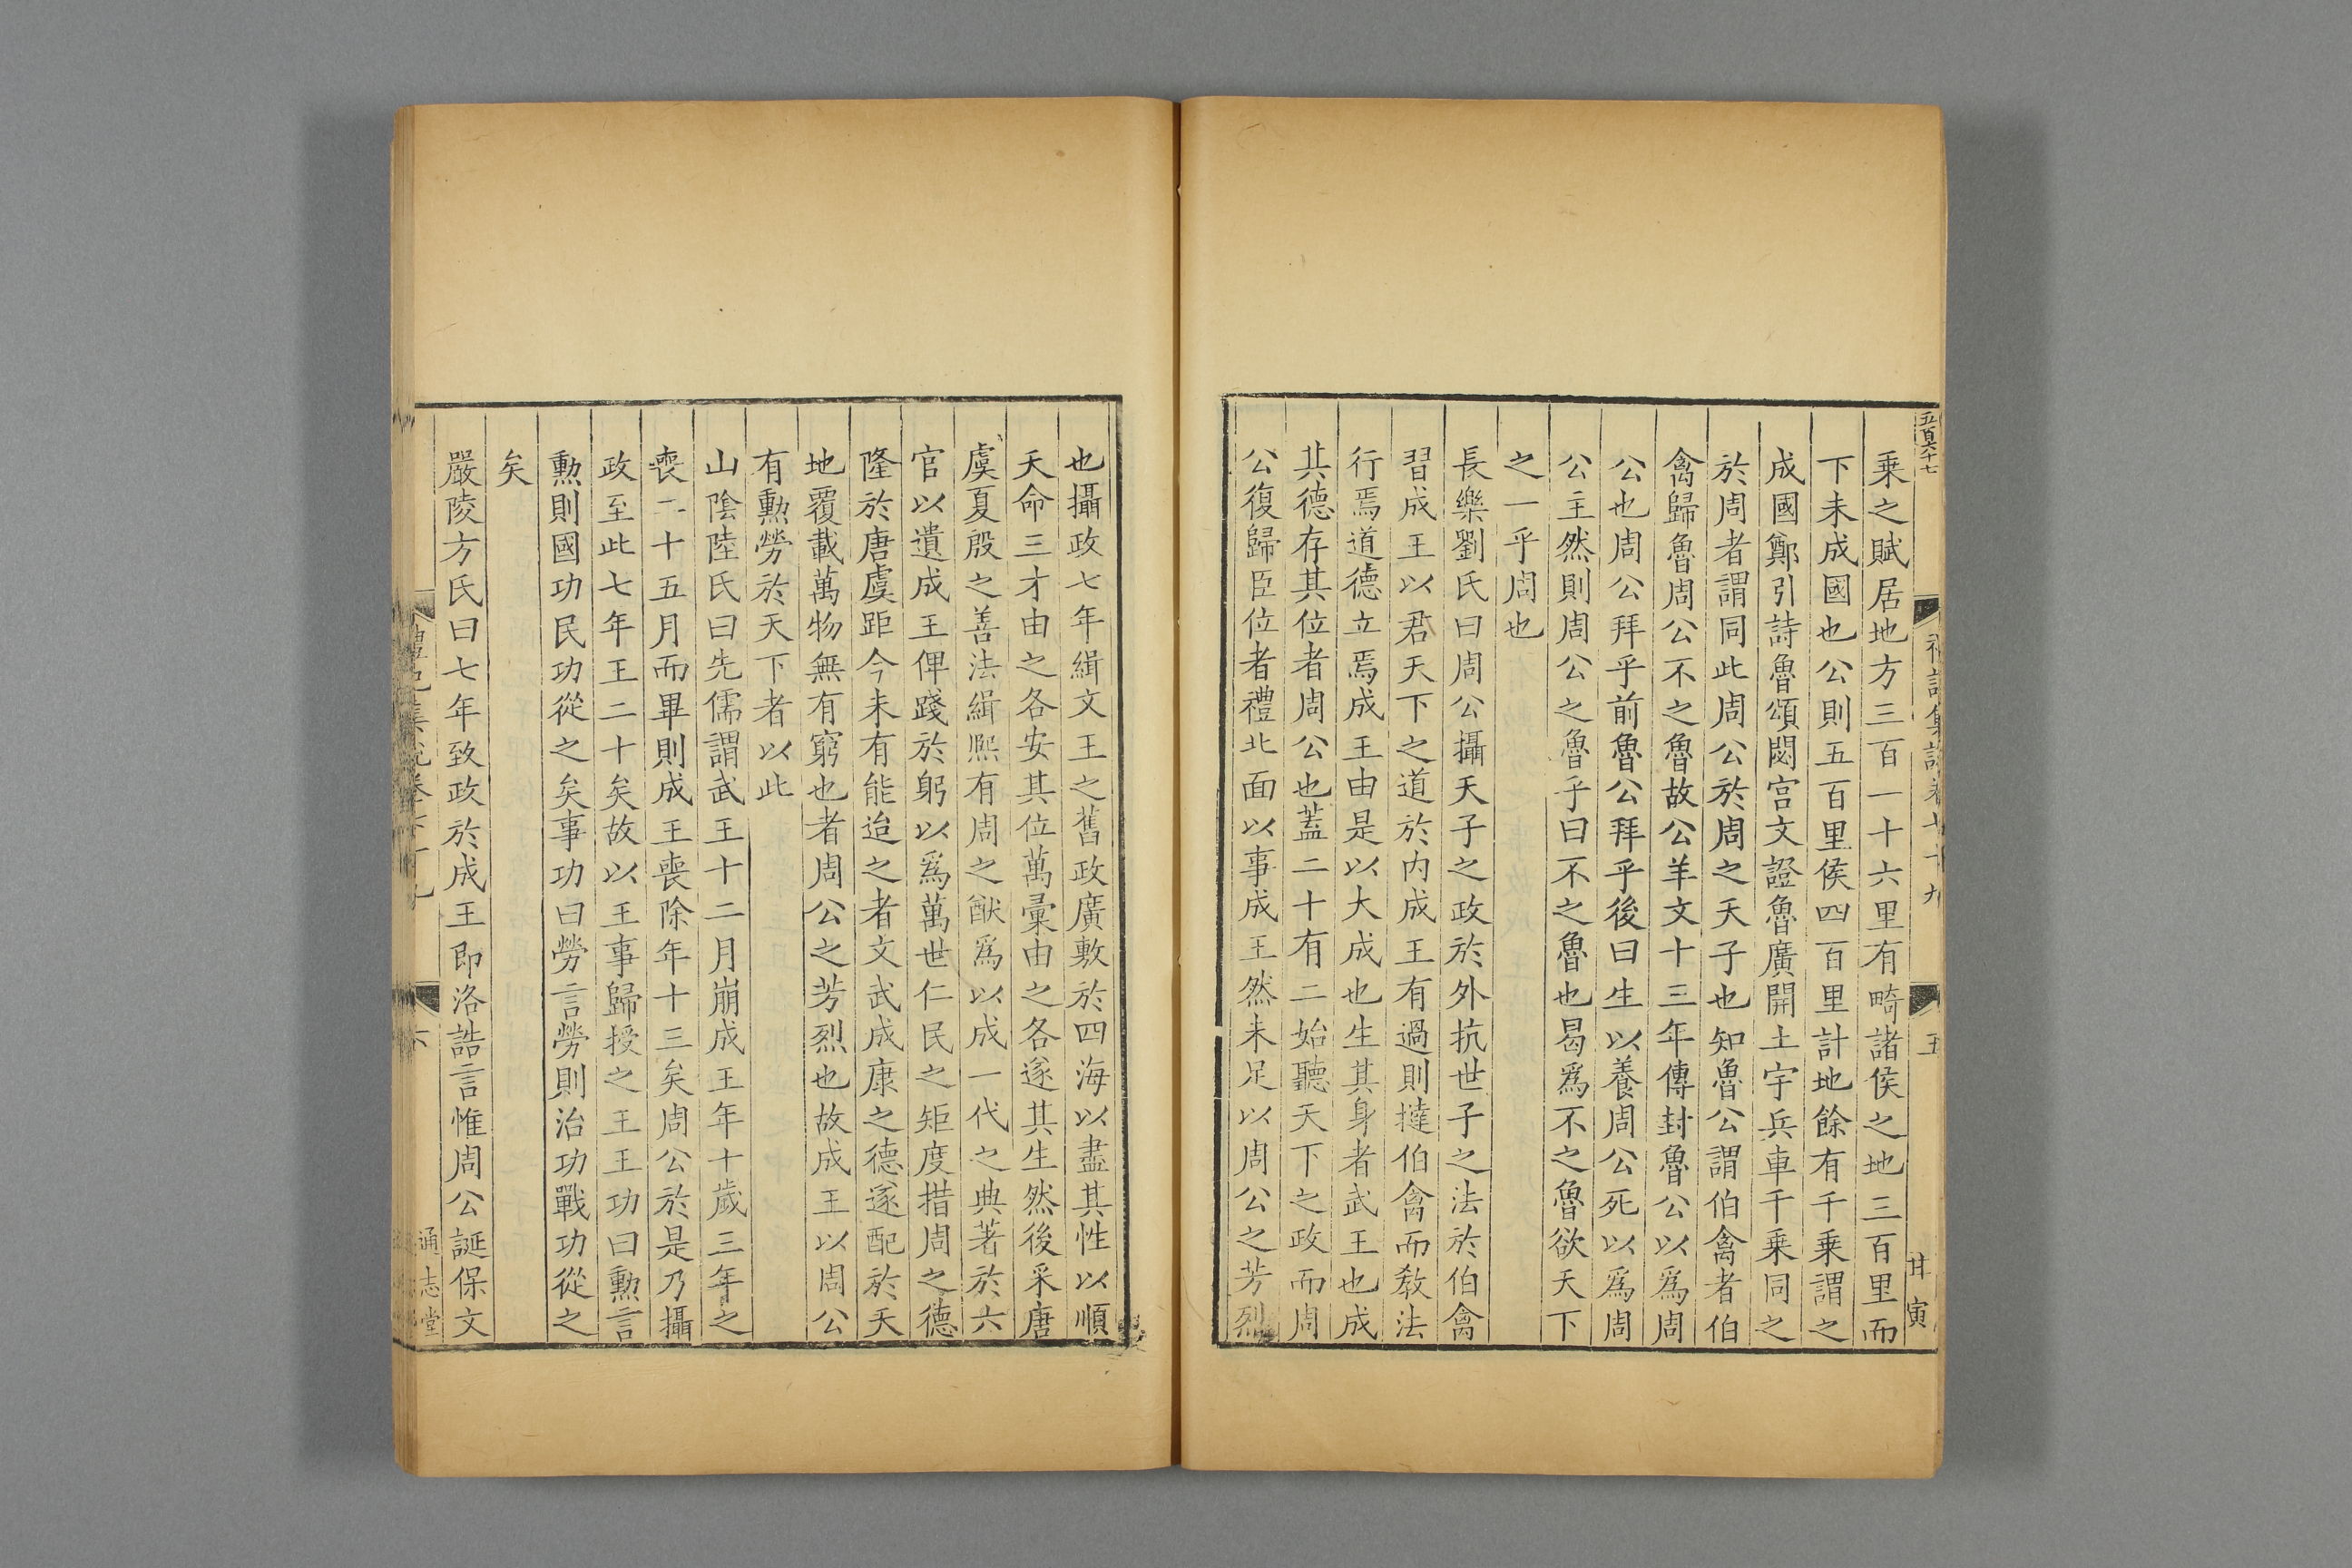 五百六十七
禮記集說卷七十九
五
甘寅
乗之賦居地方三百一十六里有畸諸侯之地三百里而
下未成國也公則五百里侯四百里計地餘有千乗謂之
成國鄭引詩魯頌閟宫文證魯廣開土宇兵車千乗同之
於周者謂同此周公於周之天子也知魯公謂伯禽者伯
禽歸魯周公不之魯故公羊文十三年傳封魯公以爲周
公也周公拜乎前魯公拜乎後曰生以養周公死以爲周
公主然則周公之魯乎曰不之魯也曷爲不之魯欲天下
之一乎周也
長樂劉氏曰周公攝天子之政於外抗世子之法於伯禽
習成王以君天下之道於内成王有過則撻伯禽而敎法
行焉道德立焉成王由是以大成也生其身者武王也成
其德存其位者周公也蓋二十有二始聽天下之政而周
公復歸臣位者禮北面以事成王然未足以周公之芳烈
也攝政七年緝文王之舊政廣敷於四海以盡其性以順
天命三才由之各安其位萬彙由之各遂其生然後采唐
虞夏殷之善法緝熈有周之猷爲以成一代之典著於六
官以遺成王俾踐於躬以爲萬世仁民之矩度措周之德
隆於唐虞距今未有能迨之者文武成康之德遂配於天
地覆載萬物無有窮也者周公之芳烈也故成王以周公
有勲勞於天下者以此
山陰陸氏曰先儒謂武王十二月崩成王年十歲三年之
喪二十五月而畢則成王喪除年十三矣周公於是乃攝
政至此七年王二十矣故以王事歸授之王王功曰勲言
勲則國功民功從之矣事功曰勞言勞則治功戰功從之
矣
嚴陵方氏曰七年致政於成王即洛誥言惟周公誕保文
禮記集說卷七十九
六
通志堂